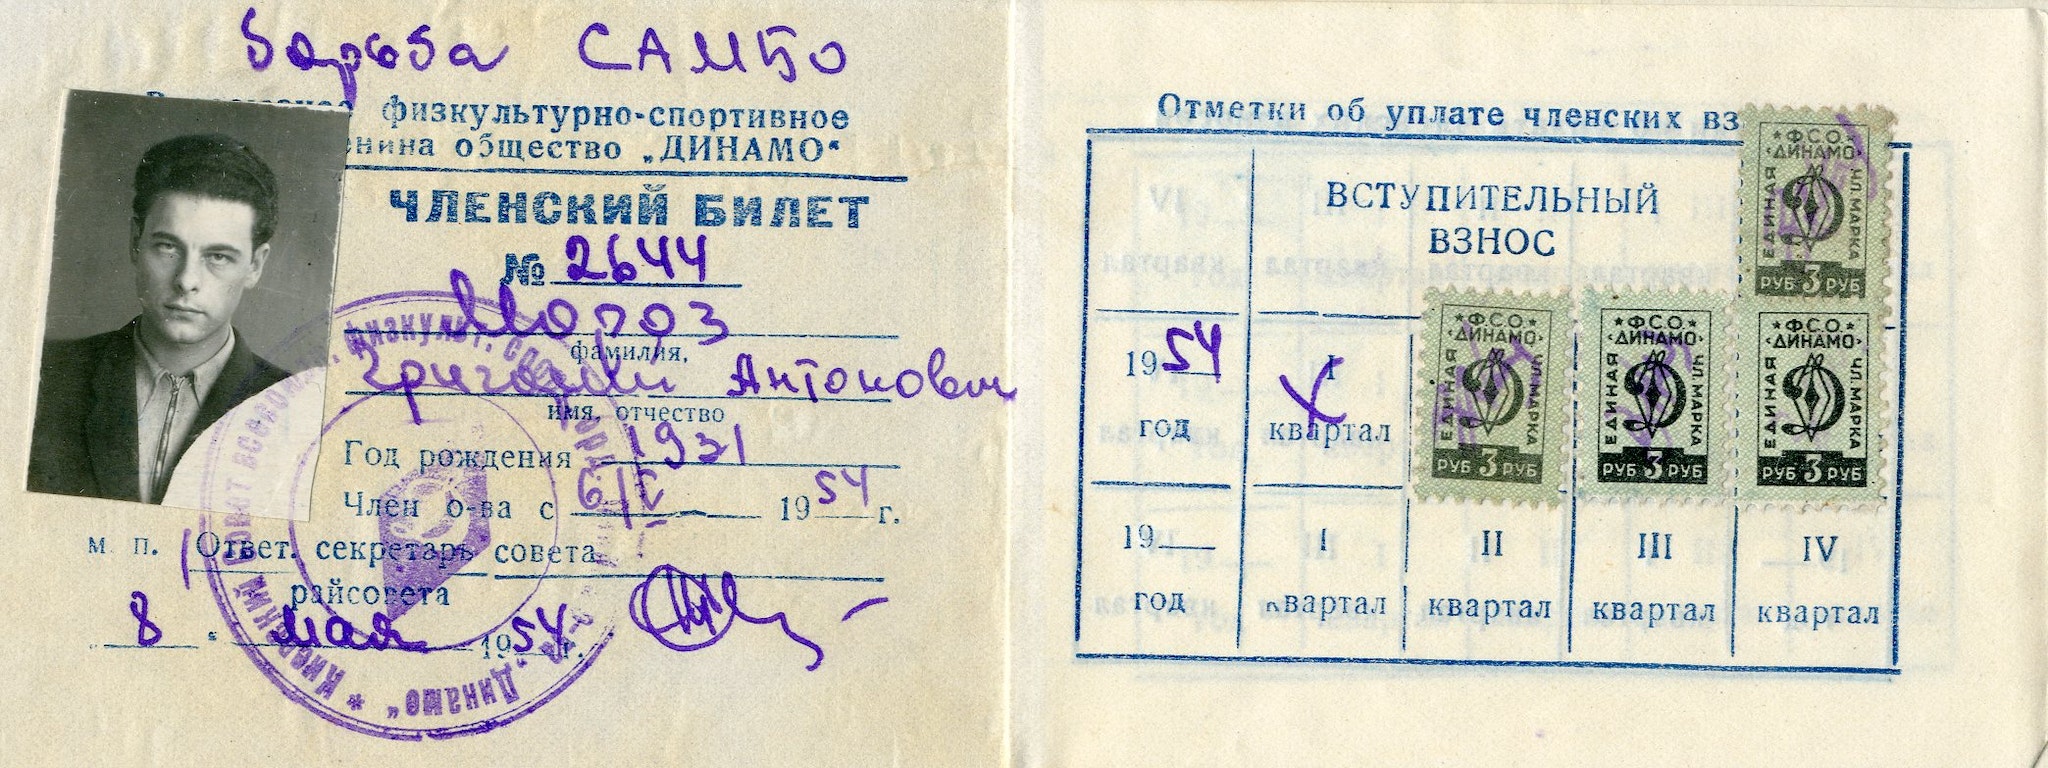 Борьба САМБО
физкультурно-спортивное
общество „ДИНАМО“
ЧЛЕНСКИЙ БИЛЕТ
№ 2644
Мороз
фамилия,
Григорий Антонович
имя, отчество
Год рождения 1931
Член о-ва с 6/V 1954 г.
м. п. Ответ. секретарь совета
райсовета
8 мая 1954 г.
Киевский Совет физкульт. спорт. „Динамо“
Отметки об уплате членских вз
ВСТУПИТЕЛЬНЫЙ
ВЗНОС
Ф.С.О.
«ДИНАМО»
ЕДИНАЯ ЧЛ. МАРКА
РУБ 3 РУБ
1954 год
I квартал
Ф.С.О.
«ДИНАМО»
ЕДИНАЯ ЧЛ. МАРКА
РУБ 3 РУБ
Ф.С.О.
«ДИНАМО»
ЕДИНАЯ ЧЛ. МАРКА
РУБ 3 РУБ
Ф.С.О.
«ДИНАМО»
ЕДИНАЯ ЧЛ. МАРКА
РУБ 3 РУБ
19 I II III IV
год квартал квартал квартал квартал